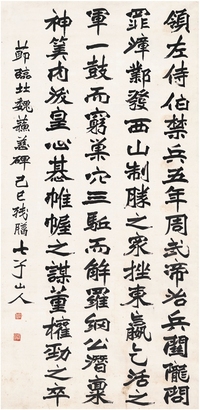 領左侍伯禁兵五年周武帝治兵關隴問
罪漳鄴發西山制勝之眾挫東嬴乞活之
軍一鼓而窮巢穴三駈而解羅網公潛稟
神筭内發皇心基帷幄之謀董權勁之卒
節臨北魏蘇慈碑己巳殘臘七芋山人